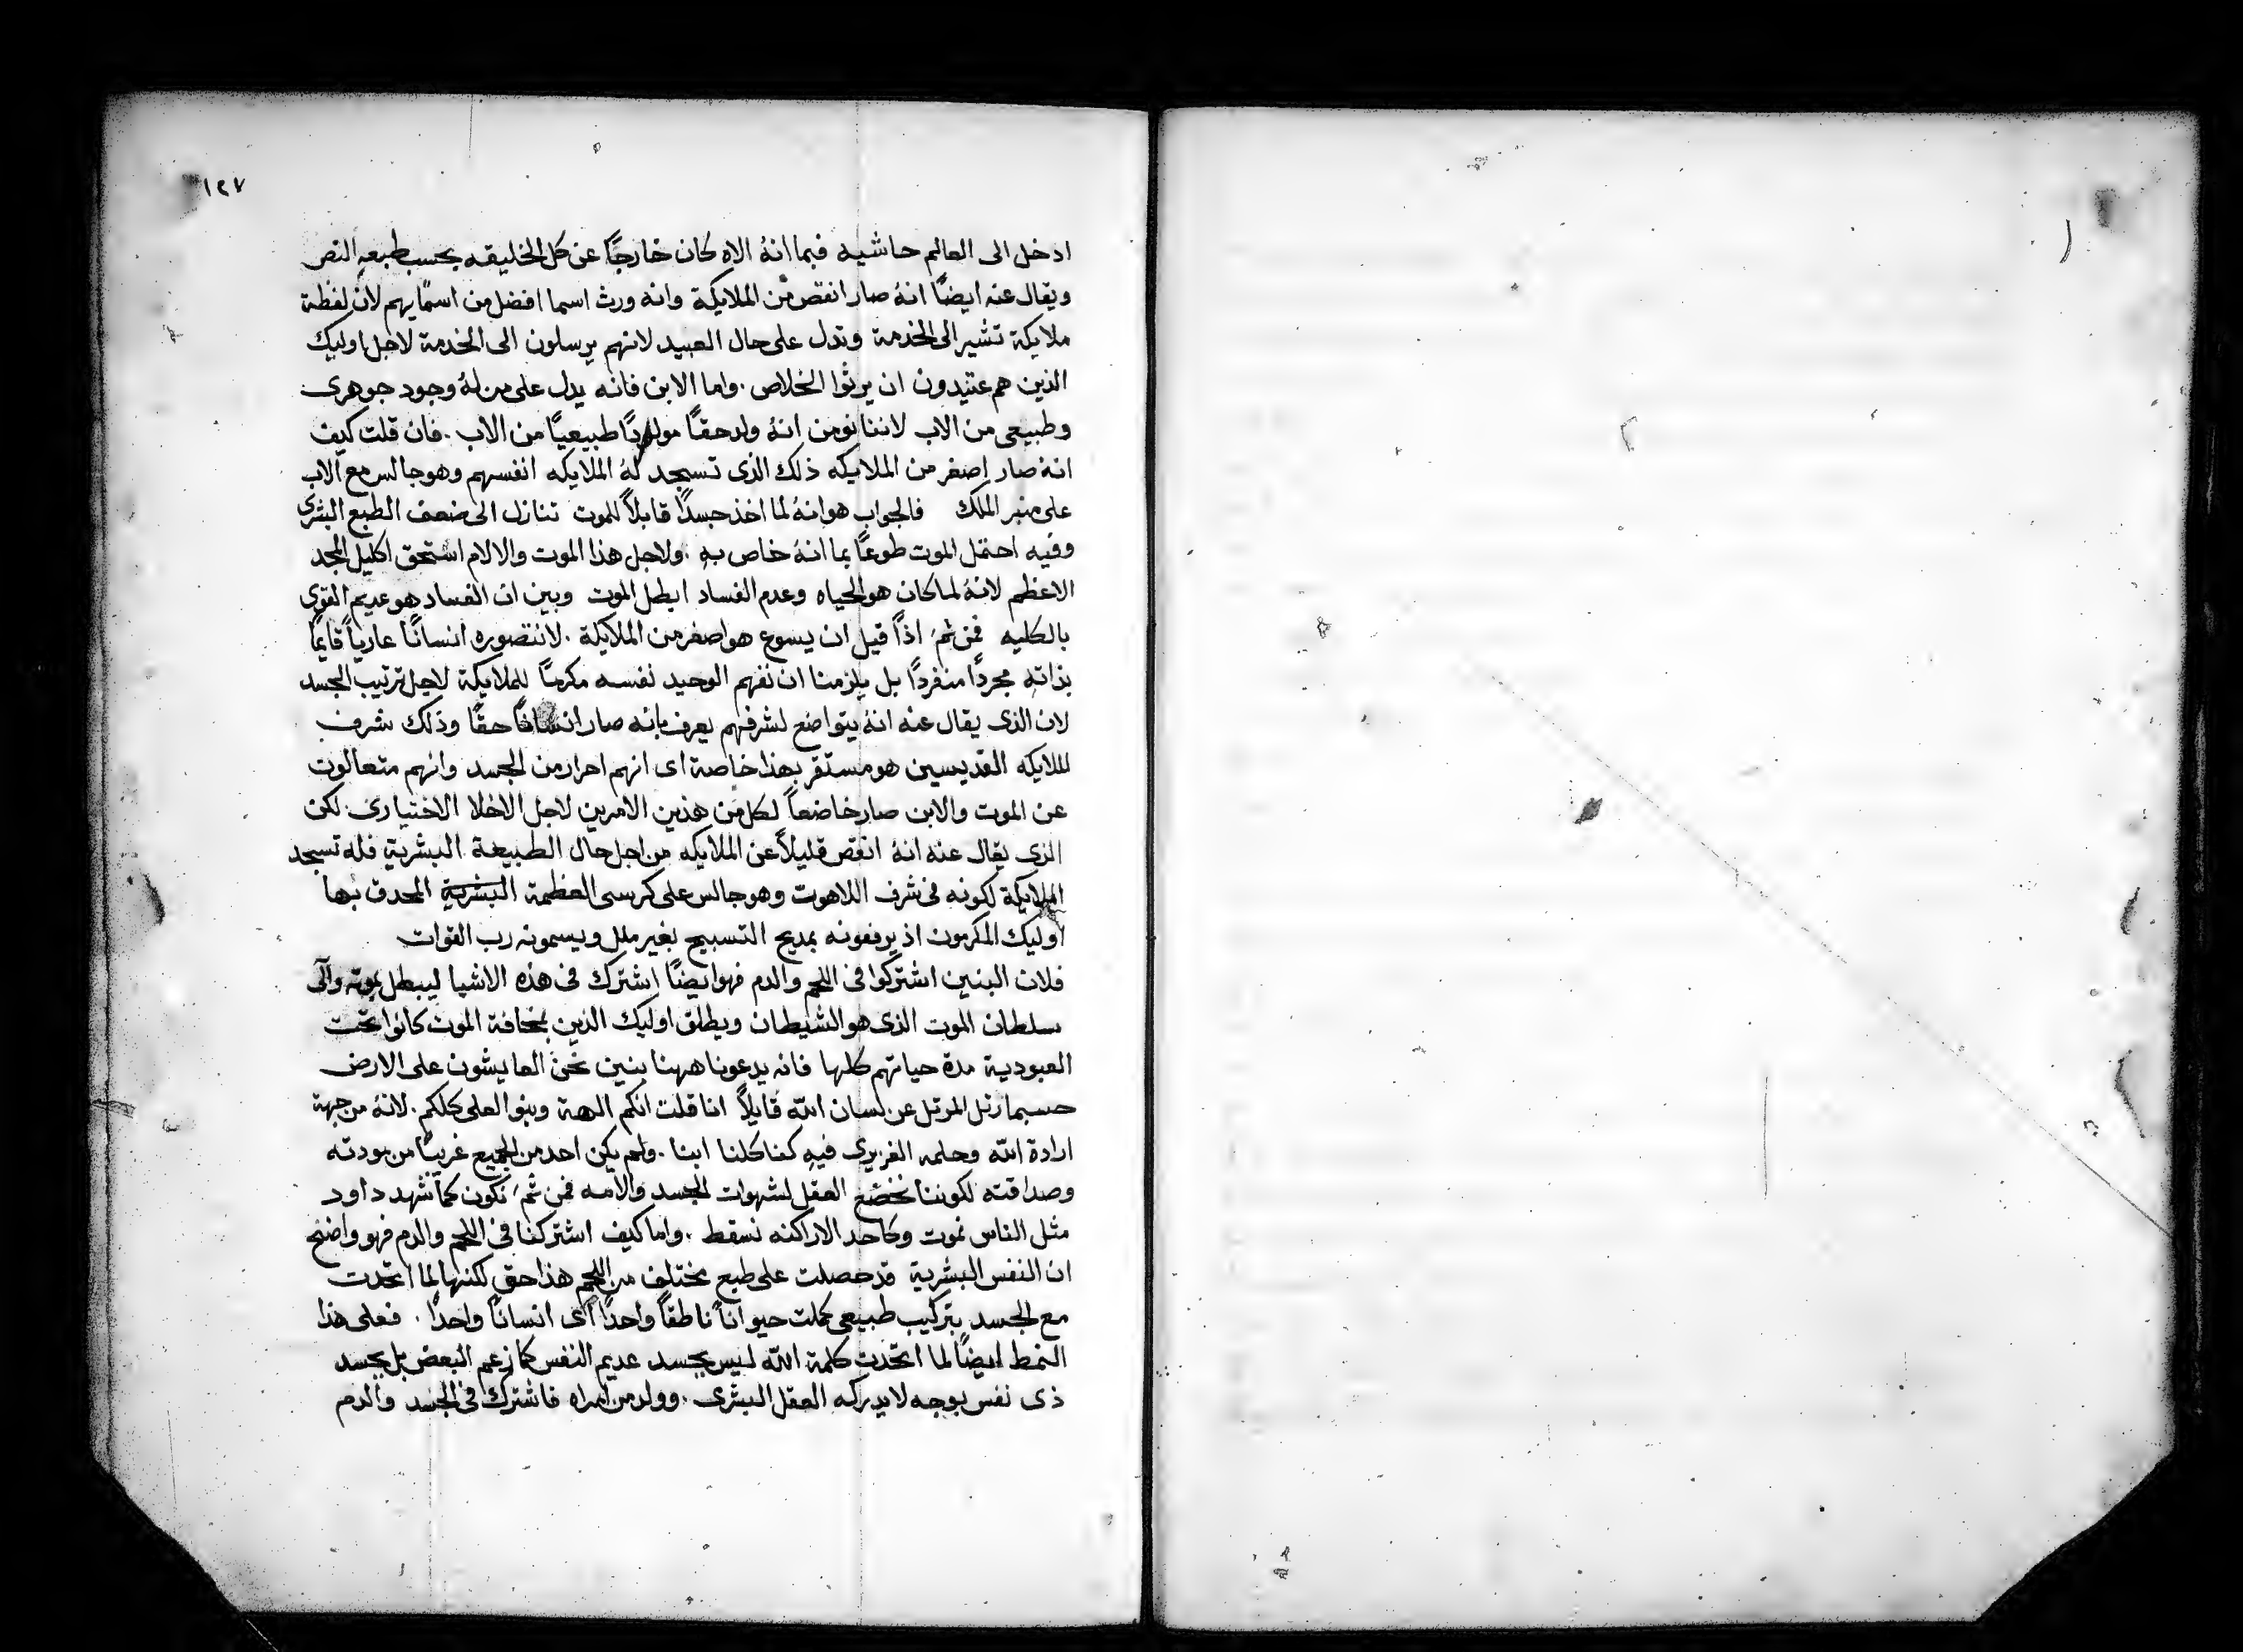 ١٢٧
ادخل الى العالم حاشيه فبما انهُ الاه كان خارجًا عن كل الخليقه بحسب طبعهِ النص
ويقال عنه ايضًا انهُ صار انقص من الملايكة وانه ورث اسما افضل من اسمايهم لان لفظة
ملايكة تشير الى الخدمة وتدل على حال العبيد لانهم يرسلون الى الخدمة لاجل اوليك
الذين هم عتيدون ان يرثوا الخلاص. واما الابن فانه يدل على من لهُ وجود جوهرى
وطبيعى من الاب لاننا نومن انهُ ولد حقًا مولودًا طبيعيًا من الاب. فان قلت كيف
انهُ صار اصغر من الملايكه ذلك الذى تسجد لهُ الملايكه انفسهم وهو جالس مع الاب
على منبر الملك فالجواب هو انهُ لما اخذ جسدًا قابلاً للموت تنازل الى ضعف الطبع البشرى
وفيه احتمل الموت طوعًا بما انهُ خاص بهِ. ولاجل هذا الموت والالام استحق اكليل المجد
الاعظم لانهُ لما كان هو الحياه وعدم الفساد ابطل الموت وبين ان الفساد هو عديم القوى
بالكليه فمن ثمَ اذاً قيل ان يسوع هو اصغر من الملايكة. لا نتصوره انسانًا عارياً قايمًا
بذاتهِ مجردًا منفردًا بل يلزمنا ان نفهم الوحيد نفسه مكرمًا للملايكة لاجل ترتيب الجسد
لان الذى يقال عنه انهُ يتواضع لشرفهم يعرف بانه صار انسانًا حقًا وذلك شرف
الملايكه القديسين هو مستقر بهذا خاصة اى انهم احرار من الجسد وانهم متعالون
عن الموت والابن صار خاضعاً لكل من هذين الامرين لاجل الاخلا الاختيارى. لكن
الذى يقال عنه انهُ انقص قليلاً عن الملايكه من اجل حال الطبيعة البشريةِ فله تسجد
الملايكة لكونه فى شرف اللاهوت وهو جالس على كرسى العظمة البشريةِ المحدق بها
اوليك المكرمون اذ يرفعونه بمديح التسبيح بغير ملل ويسمونه رب القوات
فلان البنين اشتركوا فى اللحم والدم فهو ايضًا اشترك فى هذه الاشيا ليبطل بموته والى
سلطان الموت الذى هو الشيطان ويطلق اوليك الذين بمخافة الموت كانوا تحت
العبودية مدة حياتهم كلها فانه يدعونا ههنا بنين نحن العايشون على الارض
حسبما رتل المرتل عن لسان اللّه قايلاً انا قلت انكم الهة وبنو العلى كلكم. لانهُ من جهة
ارادة اللّه وحلمه الغزيرى فيهِ كنا كلنا ابنا. ولم يكن احد من الجميع غريبًا من مودته
وصداقته لكوننا نخضع العقل لشهوات الجسد والامه فمن ثمَ نكون كما تشهد داود
مثل الناس نموت وكاحد الاراكنه نسقط. واما كيف اشتركنا فى اللحم والدم فهو واضح
ان النفس البشرية قد حصلت على طبع مختلف من اللحم هذا حق لكنها لما اتحدت
مع الجسد بتركيب طبيعى كملت حيواناً ناطقاً واحدًا اى انسانًا واحدًا. فعلى هذا
النمط ايضًا لما اتحدت كلمة اللّه ليس بجسد عديم النفس كما زعم البعض بل بجسد
ذى نفس بوجه لا يدركه العقل البشرى. وولد من امراه فاشترك فى الجسد والدم